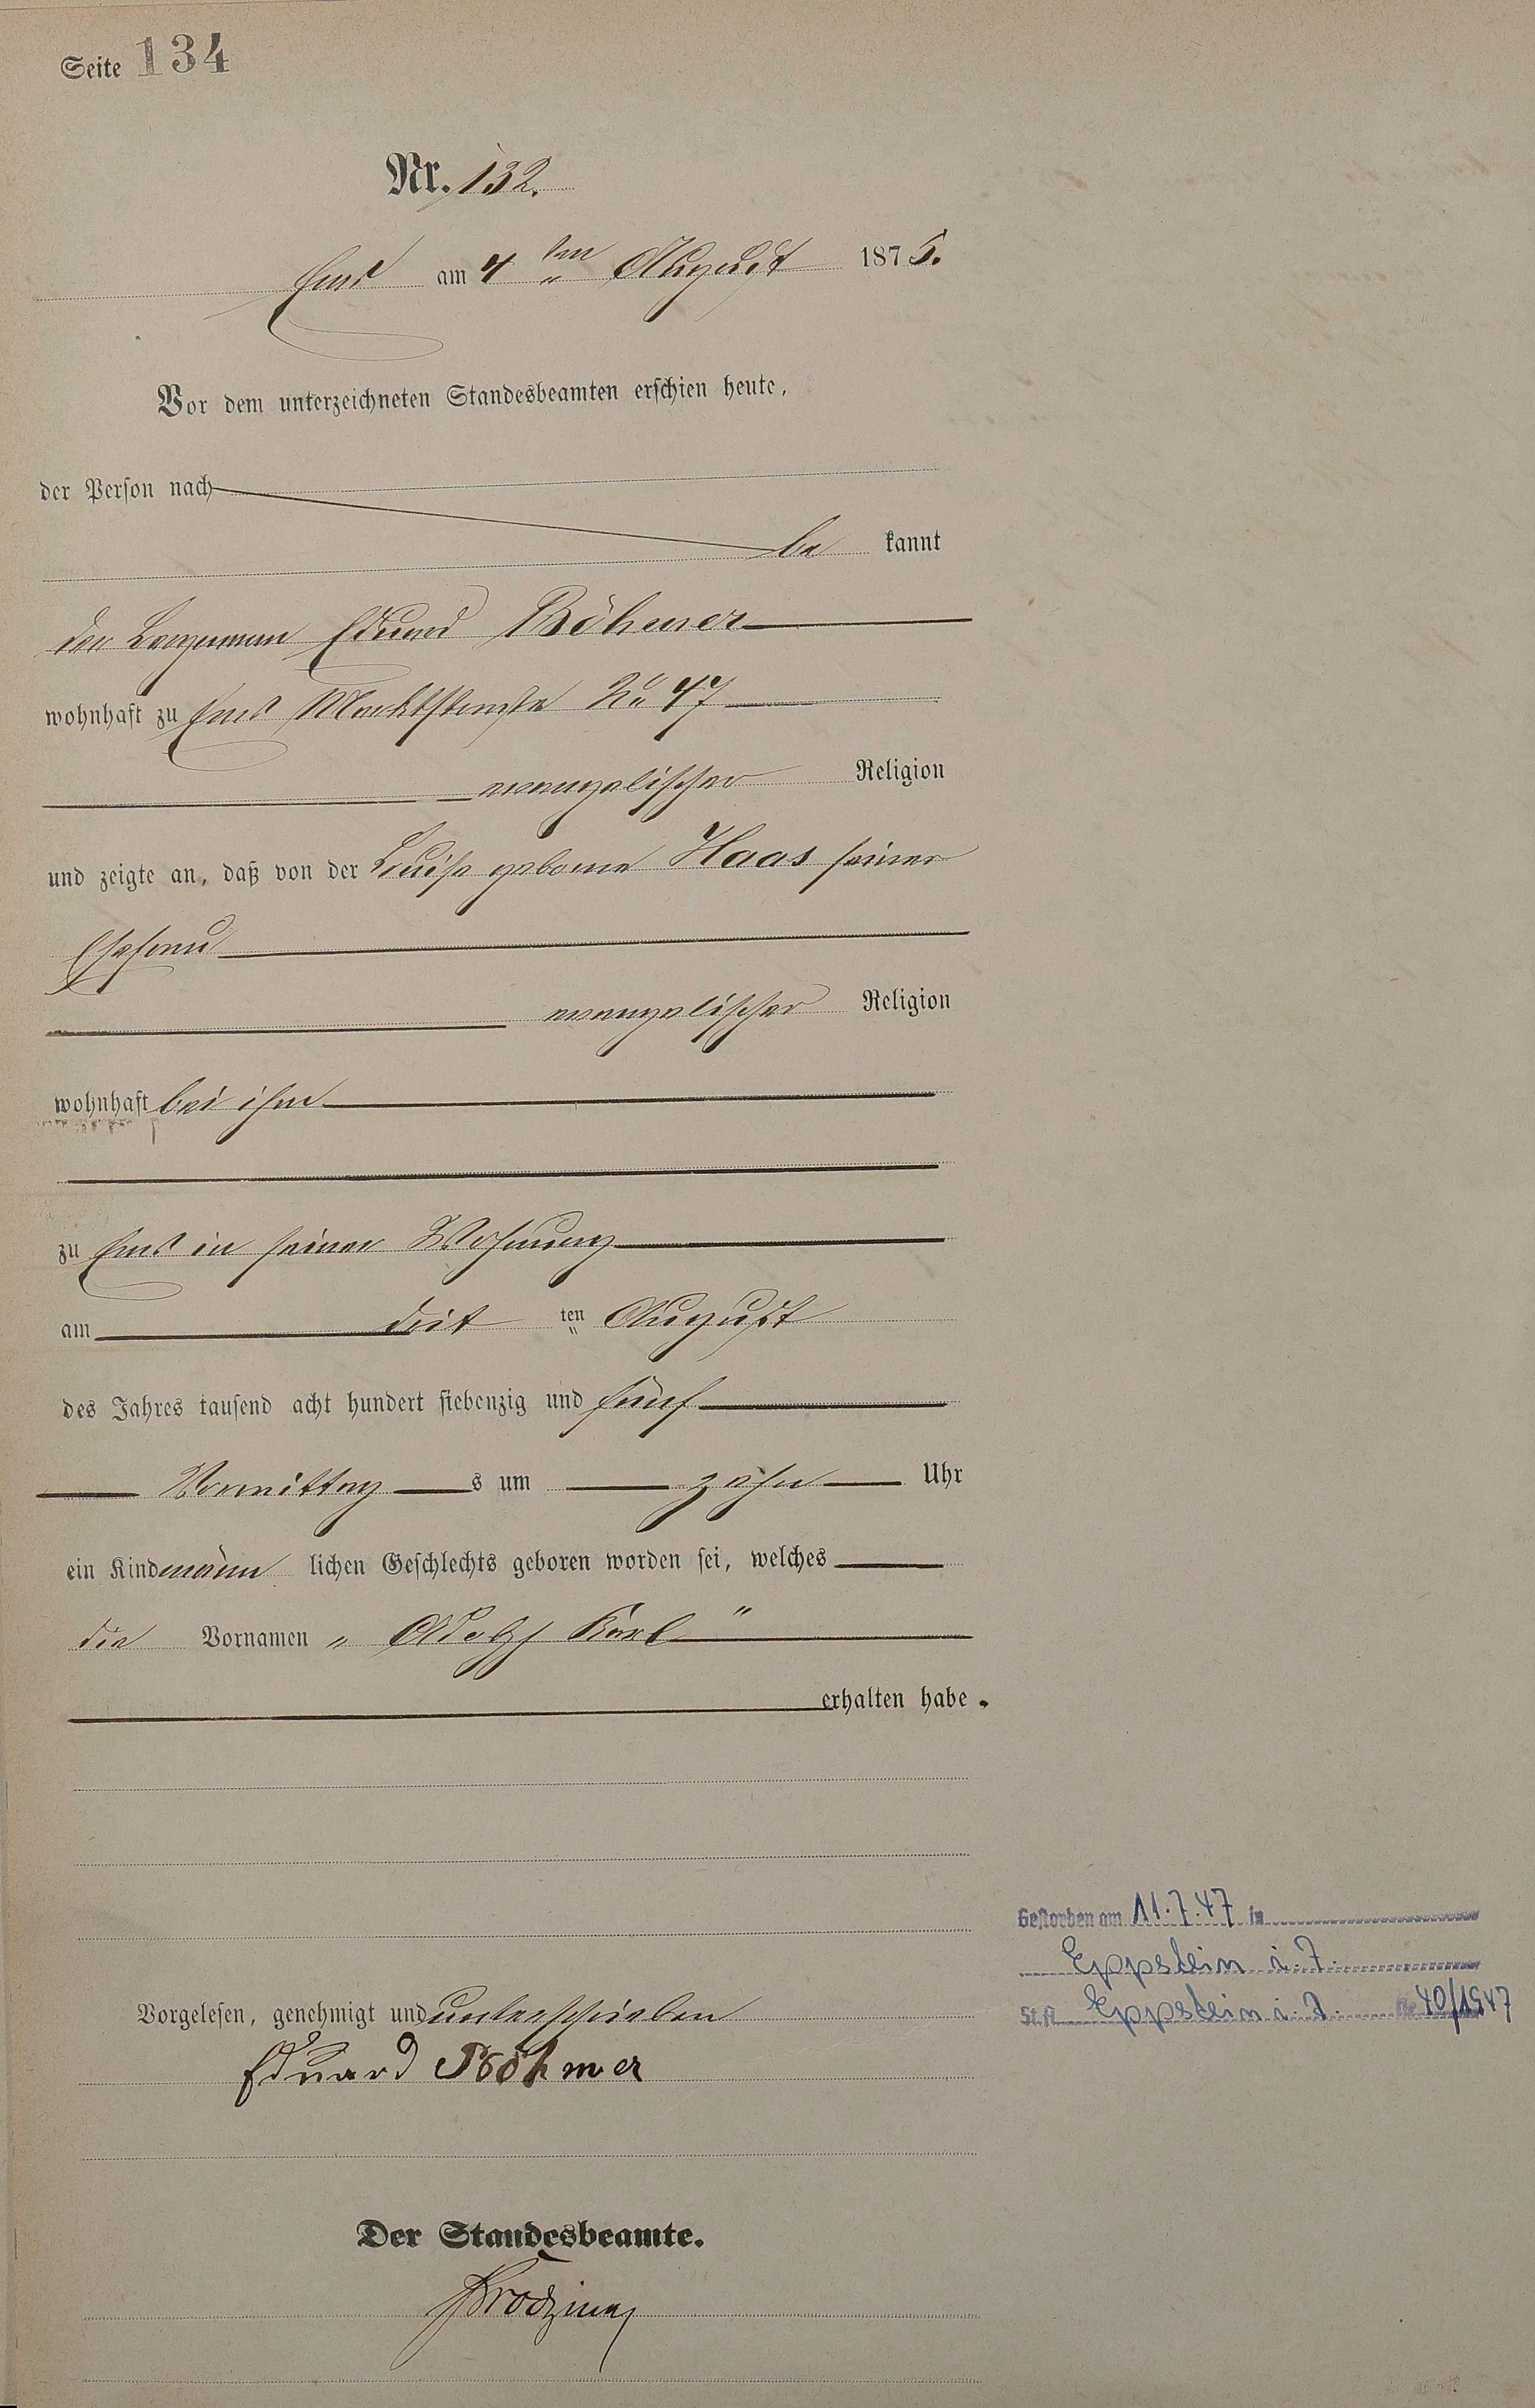 Seite 134
Nr. 132.
Ems am 4ten August 1875.
Vor dem unterzeichneten Standesbeamten erschien heute,
der Person nach
be kannt
der Bergmann Eduard Böhmer
wohnhaft zu Ems Marktstraße No 47
evangelischer Religion
und zeigte an, daß von der Louise geborne Haas seiner
Ehefrau
evangelischer Religion
wohnhaft bei ihm
zu Ems in seiner Wohnung
am drit ten August
des Jahres tausend acht hundert siebenzig und fünf
Vormittag s um zehn Uhr
ein Kind männ lichen Geschlechts geboren worden sei, welches
die Vornamen „ Adolf Karl "
erhalten habe.
Gestorben am 11.7.47 in
Eppstein i. T.
St.A. Eppstein i. T. Nr. 40/1947
Vorgelesen, genehmigt und unterschrieben
Eduard Böhmer
Der Standesbeamte.